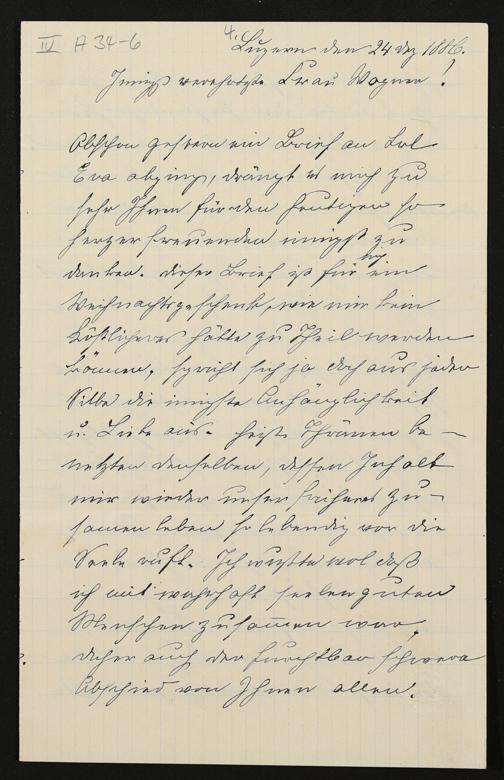 IV A 34-6
4.
Luzern den 24 Dez 1886.
Innigst verehrteste Frau Wagner!
Obschon gestern ein Brief an Frl
Eva abging, drängt es mich zu
sehr Ihnen für den heutigen so
herzerfreuenden innigst zu
danken. Dieser Brief ist für mich ein
Weihnachtsgeschenk, wie mir kein
köstlicheres hätte zu Theil werden
können, spricht sich ja doch aus jeder
Silbe die innigste Anhänglichkeit
u. Liebe aus. Heiße Thränen be-
netzten denselben, dessen Inhalt
mir wieder unser früheres Zu-
samenleben so lebendig vor die
Seele ruft. Ich wußte wol daß
ich mit wahrhaft seelenguten
Menschen zusam̄en war,
daher auch der furchtbar schwere
Abschied von Ihnen allen.